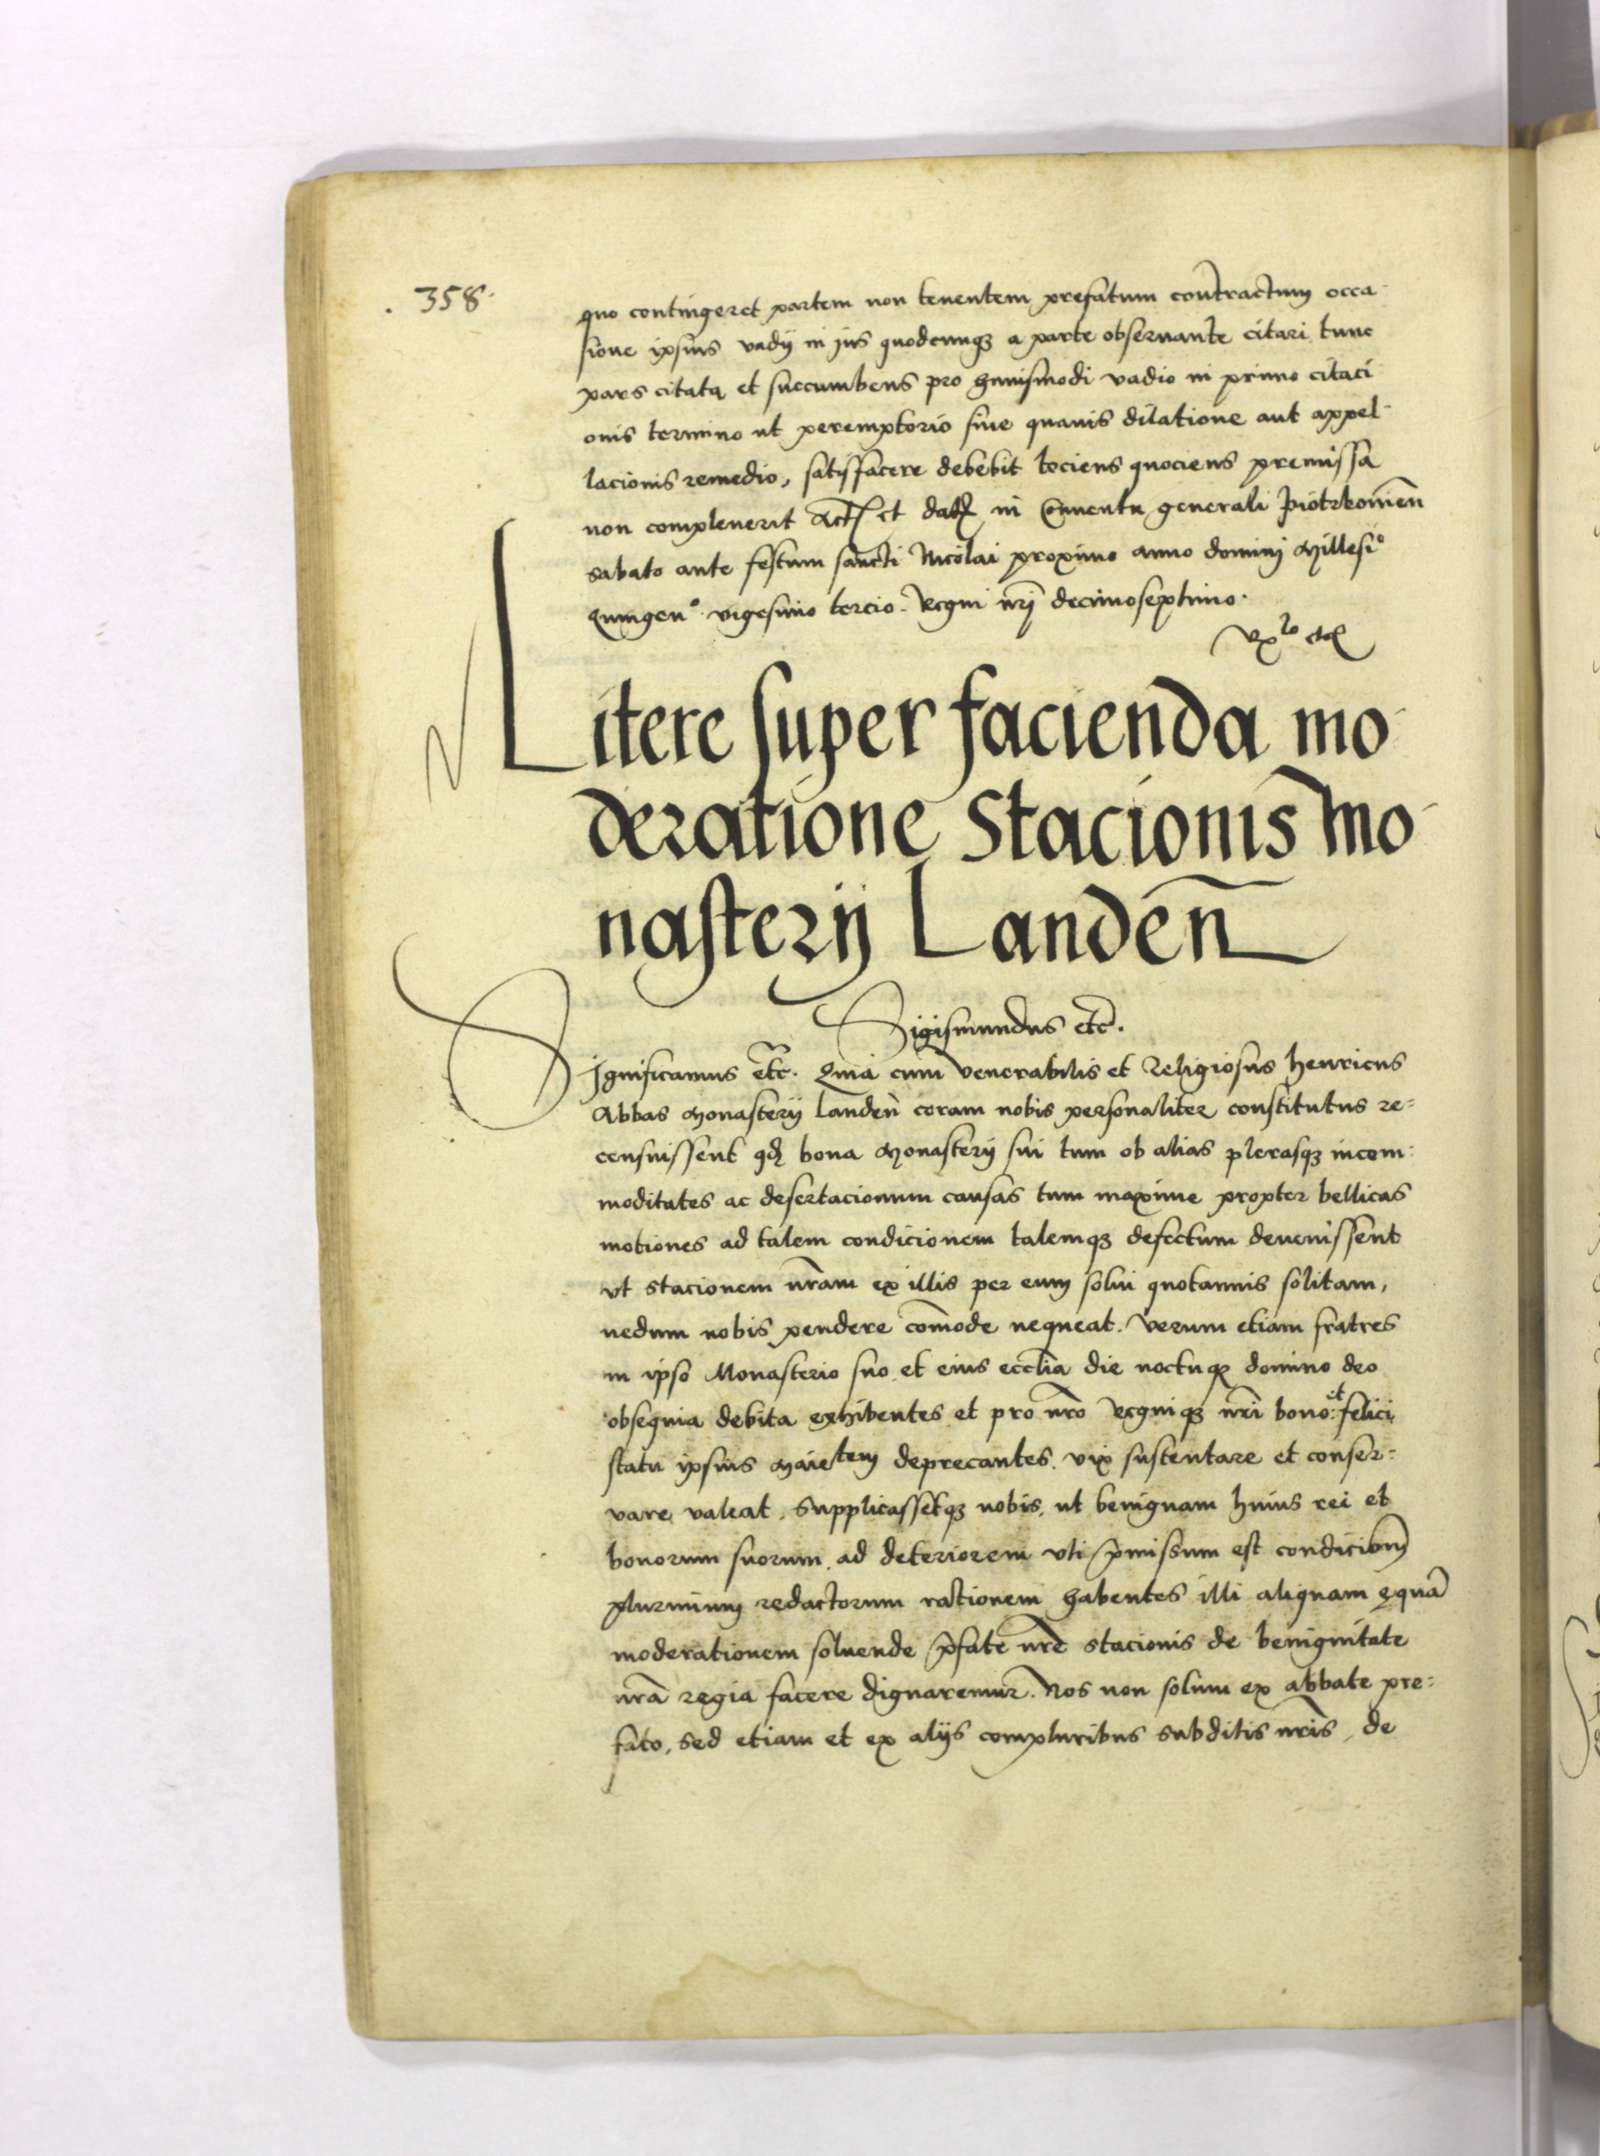 . 358.
quo contingeret partem non tenentem prefatum contractum occa-
sione ipsius vadij in jus quodcunqꝫ a parte obseruante citari tunc
pars citata et succumbens pro huiusmodi vadio in primo citaci
onis termino ut peremptorio sine quauis dilatione aut appel-
lacionis remedio, satisfacere debebit tociens quociens premissa
non compleuerit Act et dat in Conuentu generali Piotrkouien̄
sabato ante festum sancti Nicolai proximo anno domini Millesiº
Quingenº vigesimo tercio. Regni nr̄j decimoseptimo.
Litere super facienda mo-
deratione Stacionis Mo-
nasterij Landen̄
Sigismundus etc̄.
Significamus etc̄. Quia cum venerabilis et Religiosus Henricus
Abbas Monasterij Landen̄ coram nobis personaliter constitutus re=
censuissent qd bona Monasterij sui tum ob alias plerasqꝫ incom:
moditates ac desertacionum causas tum maxime propter bellicas
motiones ad talem condicionem talemqꝫ defectum deuenissent
vt stacionem nr̄am ex illis per eum solui quotannis solitam,
nedum nobis pendere com̄ode nequeat. Verum etiam fratres
in ipso Monasterio suo et eius eccl̄ia die noctuqꝫ domino deo
obsequia debita exhibentes et pro nr̄o Regniqꝫ nr̄i bono et felici
statu ipsius Maietem deprecantes. vix sustentare et conser=
vare valeat. Supplicassetqꝫ nobis, ut benignam huius rei et
bonorum suorum ad deteriorem vti p̄missum est condicionē
plurimum redactorum rationem habentes illi aliquam equā
moderationem soluende p̄fate nr̄e stacionis de benignitate
nr̄a regia facere dignaremur. Nos non solum ex abbate pre=
fato, sed etiam et ex alijs compluribus subditis nr̄is, de